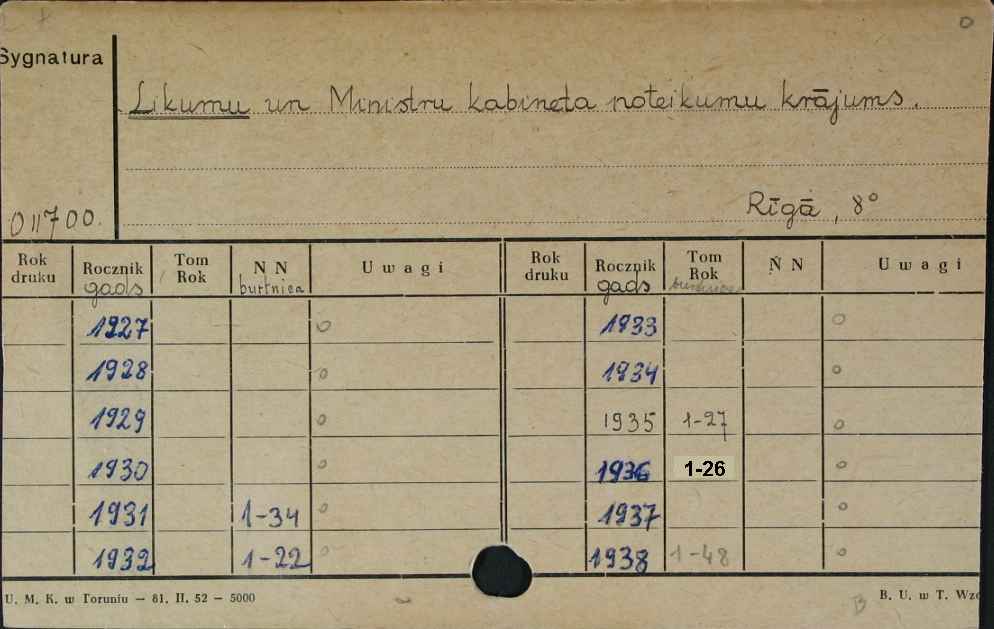 Sygnatura
Likumu un Ministru kabineta noteikumu krājums.
Rīgā, 8°
011700.
Rok druku Rocznik gads Tom Rok N N burtnica Uwagi Rok druku Rocznik gads Tom Rok N N Uwagi
1927 o 1933 o
1928 o 1934 o
1929 o 1935 1-27 o
1930 o 1936 1-26 o
1931 1-34 o 1937 o
1932 1-22 o 1938 1-48 o
U. M. K. w Toruniu — 81. II. 52 — 5000
B
B. U. w T. Wzó